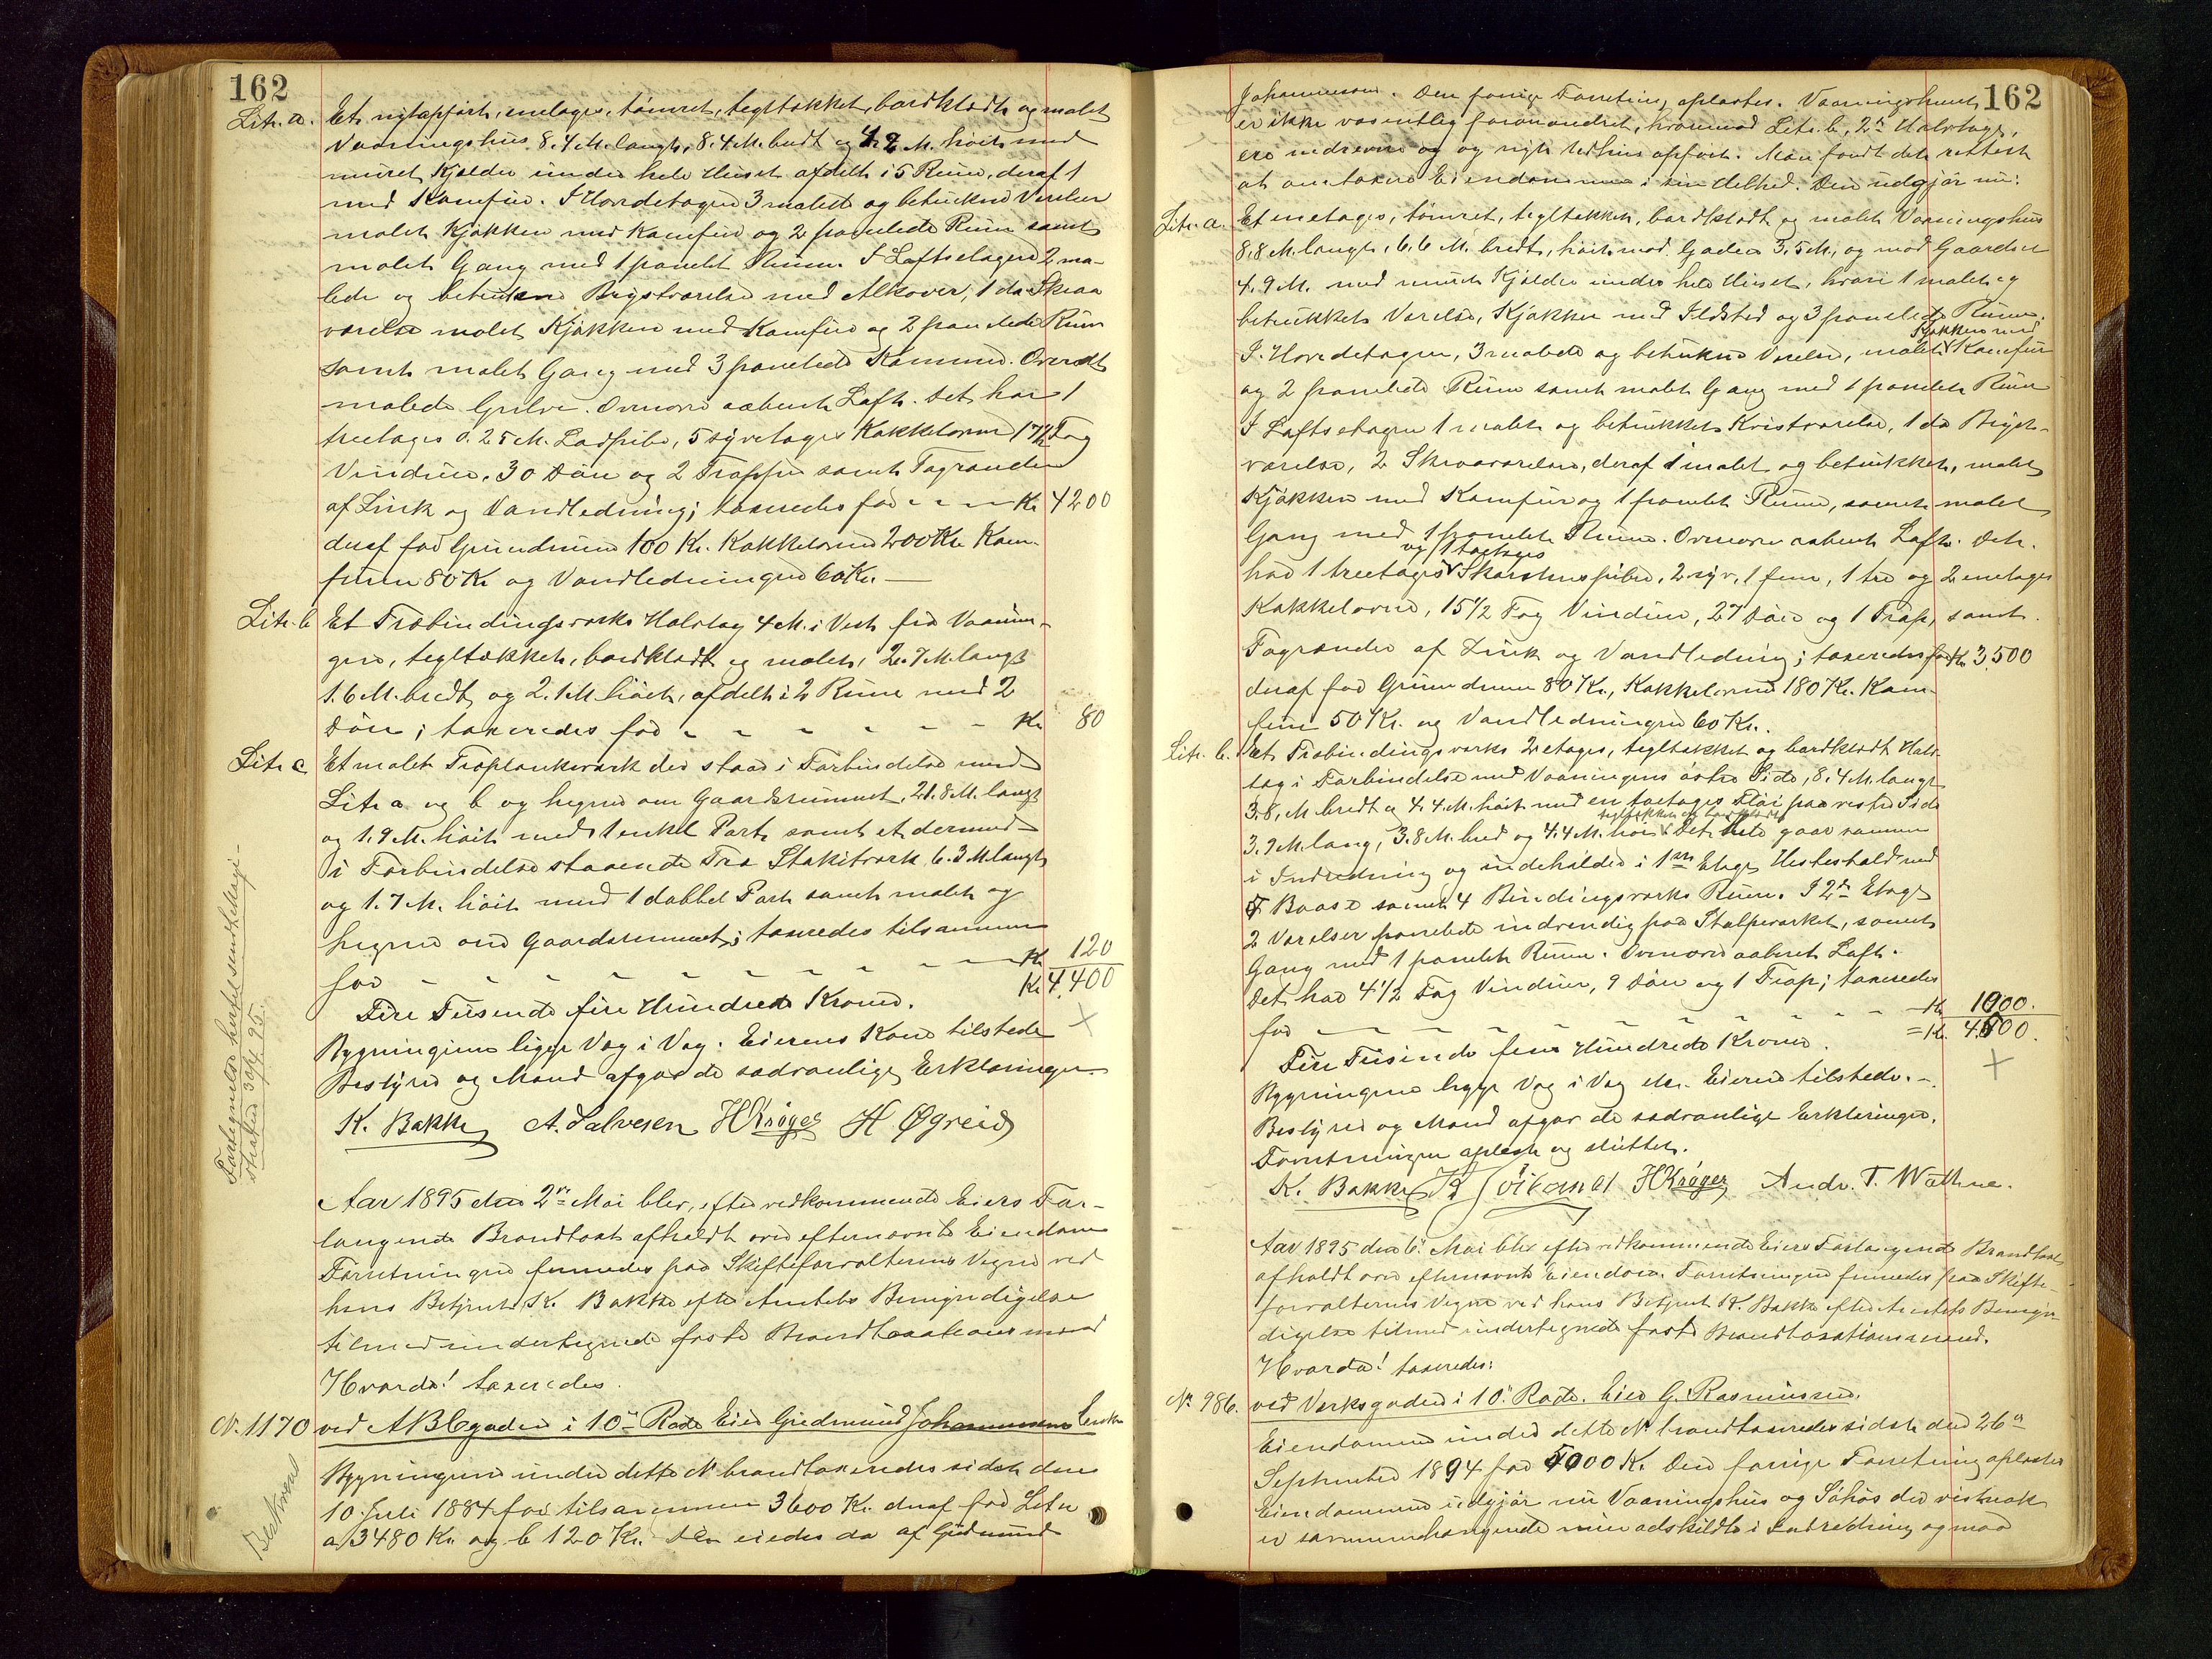 162
Litr. a. Et nytopført, enetages, tømret, tegltækket, bordklædt og malet
Vaaningshus 8.4 M. langt, 8.4 M. bredt og 4.2 M. høit med
muret Kjælder under hele Huset afdelt i 5 Rum, deraf 1
med Komfur. I Hovedetagen 3 malede og betrukne Værelser
malet Kjøkken med Komfur og 2 panelede Rum samt
malet Gang med 1 panelt Rum. I Loftsetagen 2 ma-
lede og betrukne Brystværelse med Alkover, 1 do Skraa
værelse malet Kjøkken med Komfur og 2 panelede Rum
samt malet Gang med 3 panelede Kammere. Overalt
malede Gulve. Ovenover aabent Loft. Det har 1
treetages 0.25 M. Ladpibe, 5 syvetages Kakkelovne 17½ Fag
Vinduer, 30 Døre og 2 Trapper samt Tagrender
af Zink og Vandledning; taxeredes for - - - Kr. 4200
deraf for Grundmur 100 Kr. Kakkelovne 200 Kr. Kom-
furer 80 Kr og Vandledningen 60 Kr. —
Litr. b Et Træbindingsværks Halvtag 4 M. i Vest fra Vaanin-
gen, tegltækket, bordklædt og malet, 2.7 M. langt
1.6 M. bredt og 2.1 M høit, afdelt i 2 Rum med 2
Døre; taxeredes for - - - - - - Kr. 80
Litr c Et malet Træplankeværk der staar i Forbindelse med
Litr a og b og hegner om Gaardsrummet, 21.8 M. langt
og 1.9 M. høit med 1 enkel Port samt et dermed
i Forbindelse staaende Træ Stakitværk 6.3 M. langt
og 1.7 M. høit med 1 dobbel Port samt malet og
hegner om Gaardsrummet; taxeredes tilsammen
for - - - - - - - - - Kr. 120
Kr. 4,400
Fire Tusende fire Hundrede Kroner.
Bygningerne ligge Væg i Væg. Eierens Kone tilstede
Bestyrer og Mænd afgav de sædvanlige Erklæringer
K. Bakke A. Salvesen H Krøger H. Øgreid
Aar 1895 den 2den Mai blev, efter vedkommende Eiers For-
langende Brandtaxt afholdt over efternævnte Eiendom
Forretningen fremmedes paa Skifteforvalterens Vegne ved
hans Betjent K. Bakke efter Amtets Bemyndigelse
tilmed undertegnede faste Brandtaxationsmænd
Hvorda! taxeredes.
N. 1170 ved ABCgaden i 10de Rode Eier Gudmund Johannesens Enke
Bygningerne under dette N brandtaxeredes sidst den
10 Juli 1884 for tilsammen 3600 Kr. deraf for Litr
a 3480 Kr. og b 120 Kr. Den eiedes da af Gudmund
162
Johannesen. Den forrige Forretning oplæstes. Vaaningshuset
er ikke væsentlig forandret, hvorimod Litr. b, 2de Halvtage,
ere nedrevne og og nyt Udhus opført. Man fandt det rettest
at omtaxere Eiendommen i sin Helhed. Den udgjør nu:
Litr. a. Et enetages, tømret, tegltækket, bordklædt og malet Vaaningshus
8,8 M. langt, 6,6 M. bredt, høit mod Gaden 3,5 M., og mod Gaarden
4.9 M. med muret Kjælder under hele Huset, hvori 1 malet og
betrukket Værelse, Kjøkken med Ildsted og 3 panelede Rum.
I Hovedetagen, 3 malede og betrukne Værelse, malet Kjøkken med Komfur
og 2 panelede Rum samt malet Gang med 1 panelt Rum
I Loftsetagen 1 malet og betrukket Kvistværelse, 1 do Bryst-
værelse, 2 Skraaværelser, deraf 1 malet og betrukket, malet
Kjøkken med Komfur og 1 panelt Rum, samt malet
Gang med 1 panelt Rum. Ovenover aabent Loft. Det
har 1 treetages og 1 toetages Skorstenspibe, 2 syv, 1 fem, 1 tre og 2 enetages
Kakkelovne, 15½ Fag Vinduer, 27 Døre og 1 Trap, samt
Tagrender af Zink og Vandledning; taxeredes for Kr. 3,500
deraf for Grundmur 80 Kr., Kakkelovne 180 Kr. Kom-
fur 50 Kr. og Vandledningen 60 Kr.
Litr. b. Et Træbindingsværks 2 etages, tegltækket og bordklædt Halv-
tag i Forbindelse med Vaaningens østre Side, 8.4 M. langt
3.8, M. bredt og 4.4 M. høit med en toetages Fløi paa vestre Side
3.9 M. lang, 3.8 M. bred og 4.4 M. høi tegltækket og bordklædt. Det hele gaar sammen
i Indredning og indeholder i 1ste Etage Hestestald med
Baase samt 4 Bindingsværks Rum. I 2den Etage
2 Værelser panelede indvendig paa Stolpeværket, samt
Gang med 1 panelt Rum. Ovenover aabent Loft.
Det har 4½ Fag Vinduer, 9 Døre og 1 Trap; taxeredes
for - - - - - - - - - Kr. 1000.
= Kr. 4500.
Fire Tusinde fem Hundrede Kroner.
Bygningerne ligge Væg i Væg etc. Eieren tilstede. -
Bestyrer og Mænd afgav de sædvanlige Erklæringer.
Forretningen oplæst og sluttet.
K. Bakke H Krøger Andr. T. Wathne.
Aar 1895 den 6. Mai blev efter vedkommende Eiers Forlangende Brandtaxt
afholdt over efternævnte Eiendom. Forretningen fremmedes paa Skifte-
forvalterens Vegne ved hans Betjent K. Bakke efter Amtets Bemyn-
digelse tilmed undertegnede faste Brandtaxationsmænd.
Hvorda! taxeredes:
Nr. 986. ved Verksgaden i 10. Rode. Eier G. Rasmussen.
Eiendommen under dette N brandtaxeredes sidst den 26de
September 1894 for 5000 Kr. Den forrige Forretning oplæstes
Eiendommen udgjør nu Vaaningshus og Søhus der vistnok
er sammenhængende men adskildt i Indredning og maa
Fortegnelse herfor sendt
30/4 95.